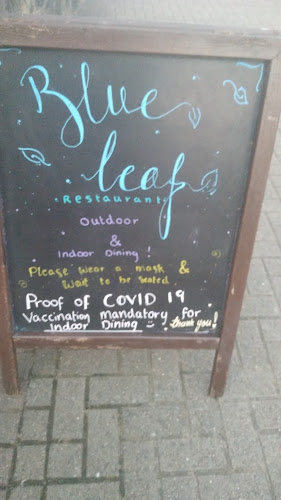 Blue
leaf
Restaurant
Outdoor
&
Indoor Dining!
Please wear a mask &
wait to be seated
Proof of COVID 19
Vaccination mandatory for
Indoor Dining thank you!